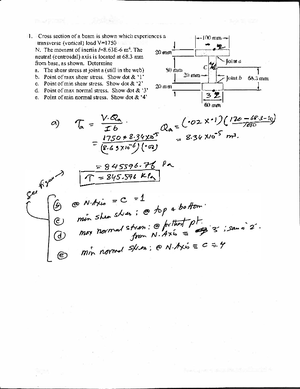 1. Cross section of a beam is shown which experiences a
transverse (vertical) load V=1750
N. The moment of inertia I=8.63E-6 m⁴. The
neutral (centroidal) axis is located at 68.3 mm
from base, as shown. Determine
a. The shear stress at joint a (still in the web)
b. Point of max shear stress. Show dot & '1'
c. Point of min shear stress. Show dot & '2'
d. Point of max normal stress. Show dot & '3'
e. Point of min normal stress. Show dot & '4'
100 mm
20 mm
Joint a
50 mm
C
20 mm
Joint b
68.3 mm
20 mm
3 2
60 mm
a) τa = V·Qa / I b
Qa = (.02 × .1) (120 - 68.3 - 10) / 1000
= 1750 × 8.34×10⁻⁵ / (8.63×10⁻⁶)(.02)
= 8.34 × 10⁻⁵ m³.
= 845596.76 Pa
τ = 845.596 kPa
See Figure
b @ N.Axis = C = 1
c min shear stress: @ top & bottom.
d max normal stress: @ furthest pt.
from N.Axis = 3; same '2'.
e min normal stress: @ N.Axis = C = 4